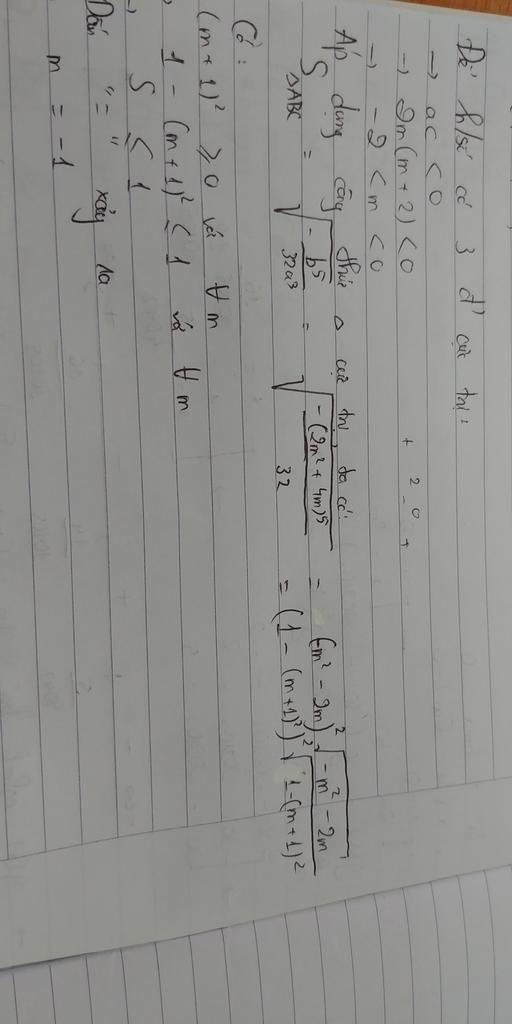 Để h/số có 3 đ' cực trị:
→ ac < 0
→ 2m(m + 2) < 0
+ -2 - 0 +
→ -2 < m < 0
Áp dụng công thức Δ cực trị ta có:
S ΔABC = √(-b⁵/32a³) = √(-(2m² + 4m)⁵/32) = (-m² - 2m)² √(-m² - 2m)
= (1 - (m+1)²)² √(1-(m+1)²)
Có:
(m+1)² ≥ 0 với ∀m
1 - (m+1)² ≤ 1 với ∀m
→ S ≤ 1
Dấu "=" xảy ra
m = -1